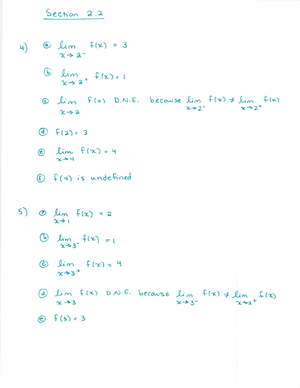 Section 2.2
4) ⓐ lim x→2⁻ f(x) = 3
ⓑ lim x→2⁺ f(x) = 1
ⓒ lim x→2 f(x) D.N.E. because lim x→2⁻ f(x) ≠ lim x→2⁺ f(x)
ⓓ f(2) = 3
ⓔ lim x→4 f(x) = 4
ⓕ f(4) is undefined
5) ⓐ lim x→1 f(x) = 2
ⓑ lim x→3⁻ f(x) = 1
ⓒ lim x→3⁺ f(x) = 4
ⓓ lim x→3 f(x) D.N.E. because lim x→3⁻ f(x) ≠ lim x→3⁺ f(x)
ⓔ f(3) = 3